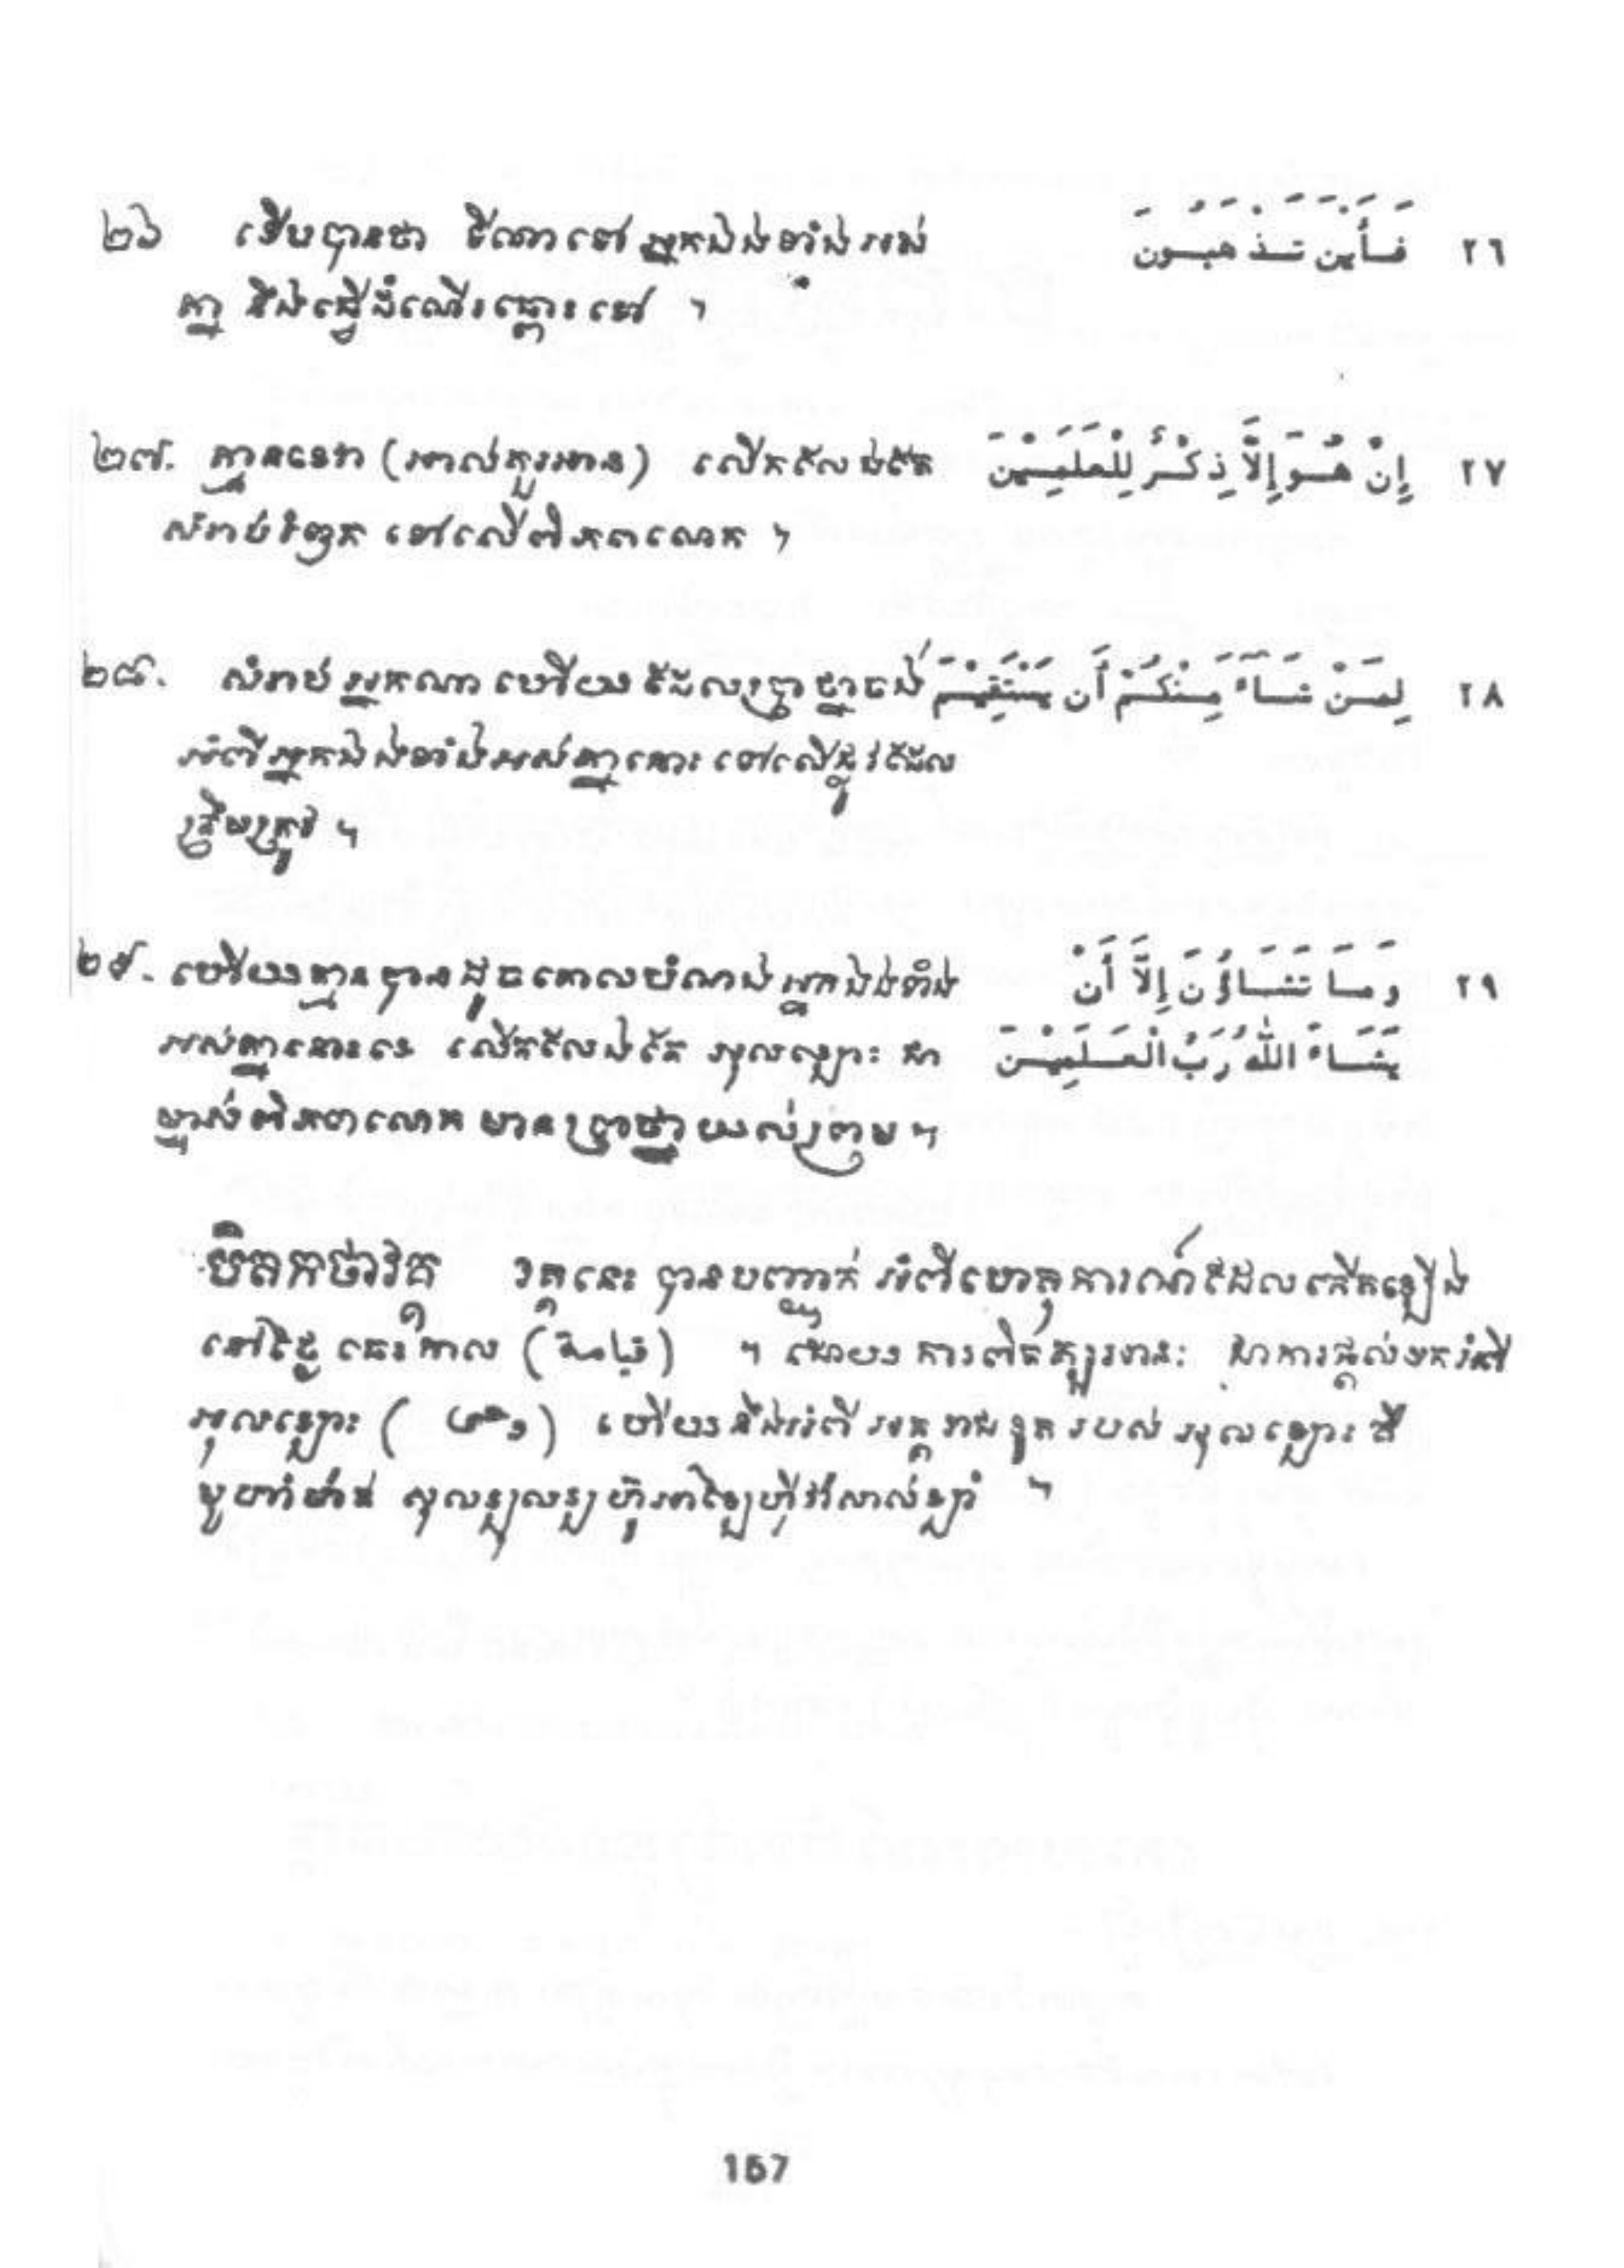 ២៦ ទើបបានជា ទីណាទៅ អ្នកង់ងទាំងអស់
គ្នា នឹងធ្វើដំណើរឆ្ពោះទៅ ។
فَأَيْنَ تَذْهَبُونَ ٢٦
២៧. គ្មានទេវា (អាល់គួរអាន) លើកលែងតែ
សំរាប់រំឭក នៅលើពិភពលោក ។
إِنْ هُوَ إِلَّا ذِكْرٌ لِلْعَلَمِينَ ٢٧
២៨. សំរាប់អ្នកណា ហើយ ដែលប្រាថ្នាចង់
អំពីអ្នកង់ងទាំងអស់គ្នានោះ នៅលើផ្លូវដែល
ត្រឹមត្រូវ ។
لِمَنْ شَآءَ مِنْكُمْ أَن يَسْتَقِيمَ ٢٨
២៩. ហើយគ្មានបានដូចគោលបំណង អ្នកង់ងទាំង
អស់គ្នានោះទេ លើកលែងតែ អុលឡោះ ជា
ម្ចាស់ពិភពលោក មានប្រាថ្នា យល់ព្រម ។
وَمَا تَشَاؤُنَ إِلَّا أَنْ ٢٩
يَشَاءَ اللهُ رَبُّ الْعَلَمِينَ
បិតកថាវគ្គ វគ្គនេះ បានបញ្ជាក់ អំពីហេតុការណ៍ដែលកើតឡើង
នៅថ្ងៃ នោះកាល ( ) ។ ដោយ ការពិតគួរអាន: ជាការផ្តល់មកអំពី
អុលឡោះ ( ) ហើយនឹងអំពី អគ្គរាជទូត របស់ អុលឡោះ គឺ
មូហាំម៉ាត់ សុលឡលឡហ៊ូអាឡៃហ៊ីវ៉ាសាល់ឡាំ ។
157